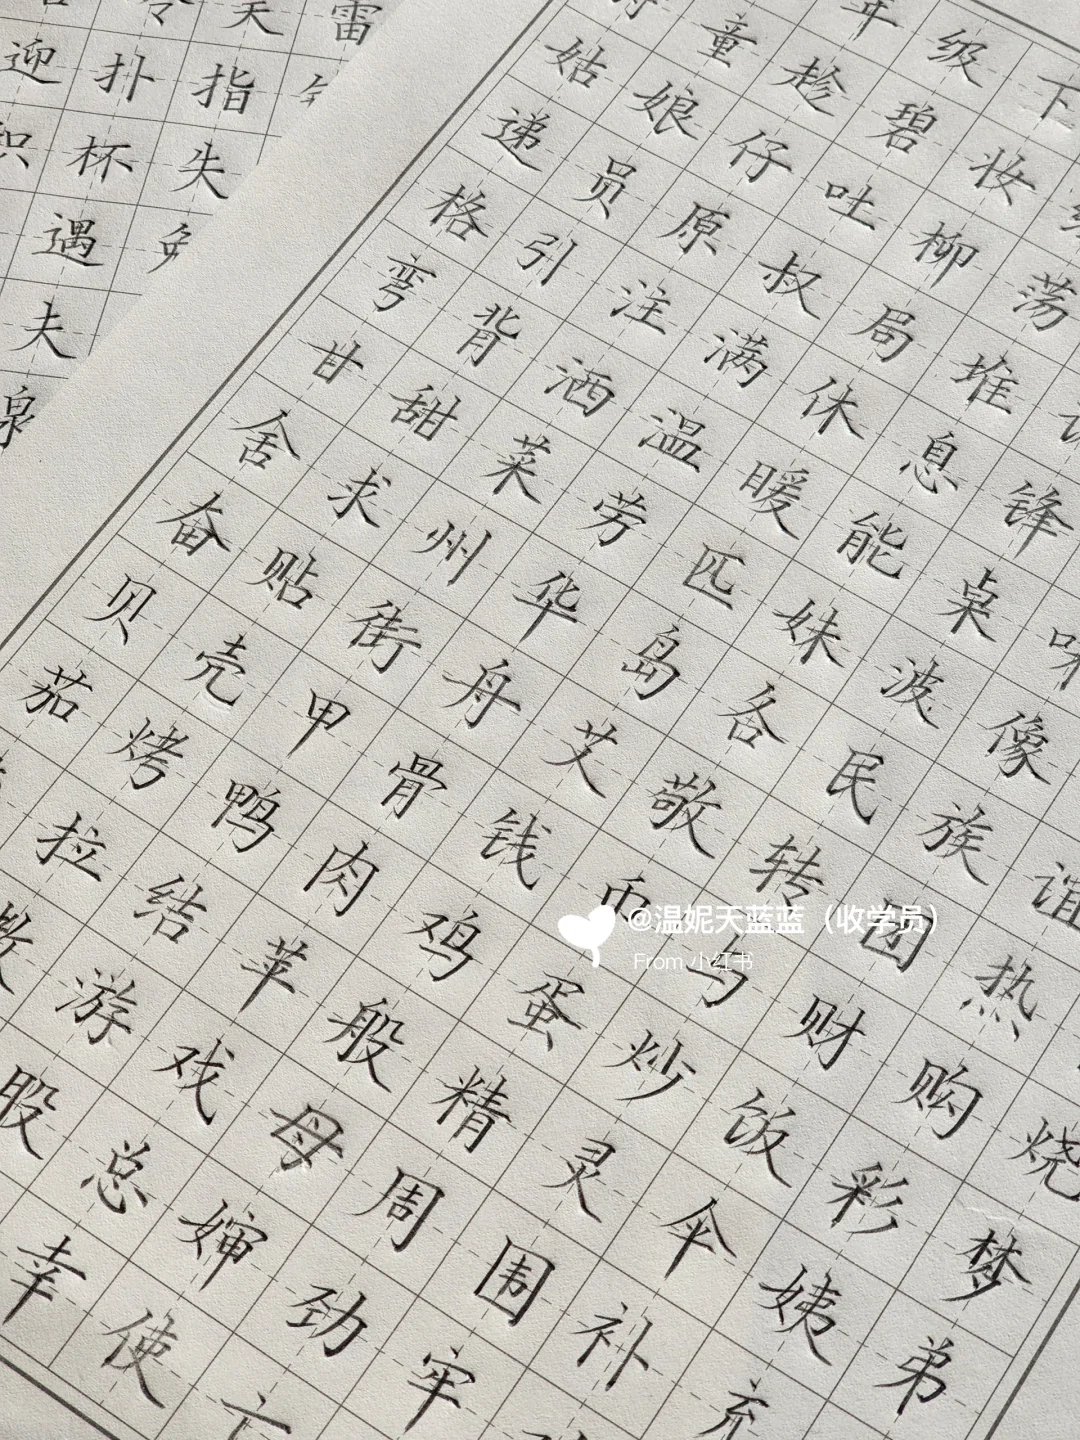 雷
迎扑指
杯失
遇
夫
泉
年级下
童趁碧妆
姑娘仔吐柳荡
递员原叔局堆
格引注满休息锋
弯背洒温暖能桌味
甘甜菜劳匹妹波像
舍求州华岛各民族谊
奋贴街舟艾敬转团热
贝壳甲骨钱币与财购烧
茄烤鸭肉鸡蛋炒饭彩梦
拉结苹般精灵伞姨弟
游戏母周围补充
股总婶劲牢
幸使
@温妮天蓝蓝（收学员）
From 小红书